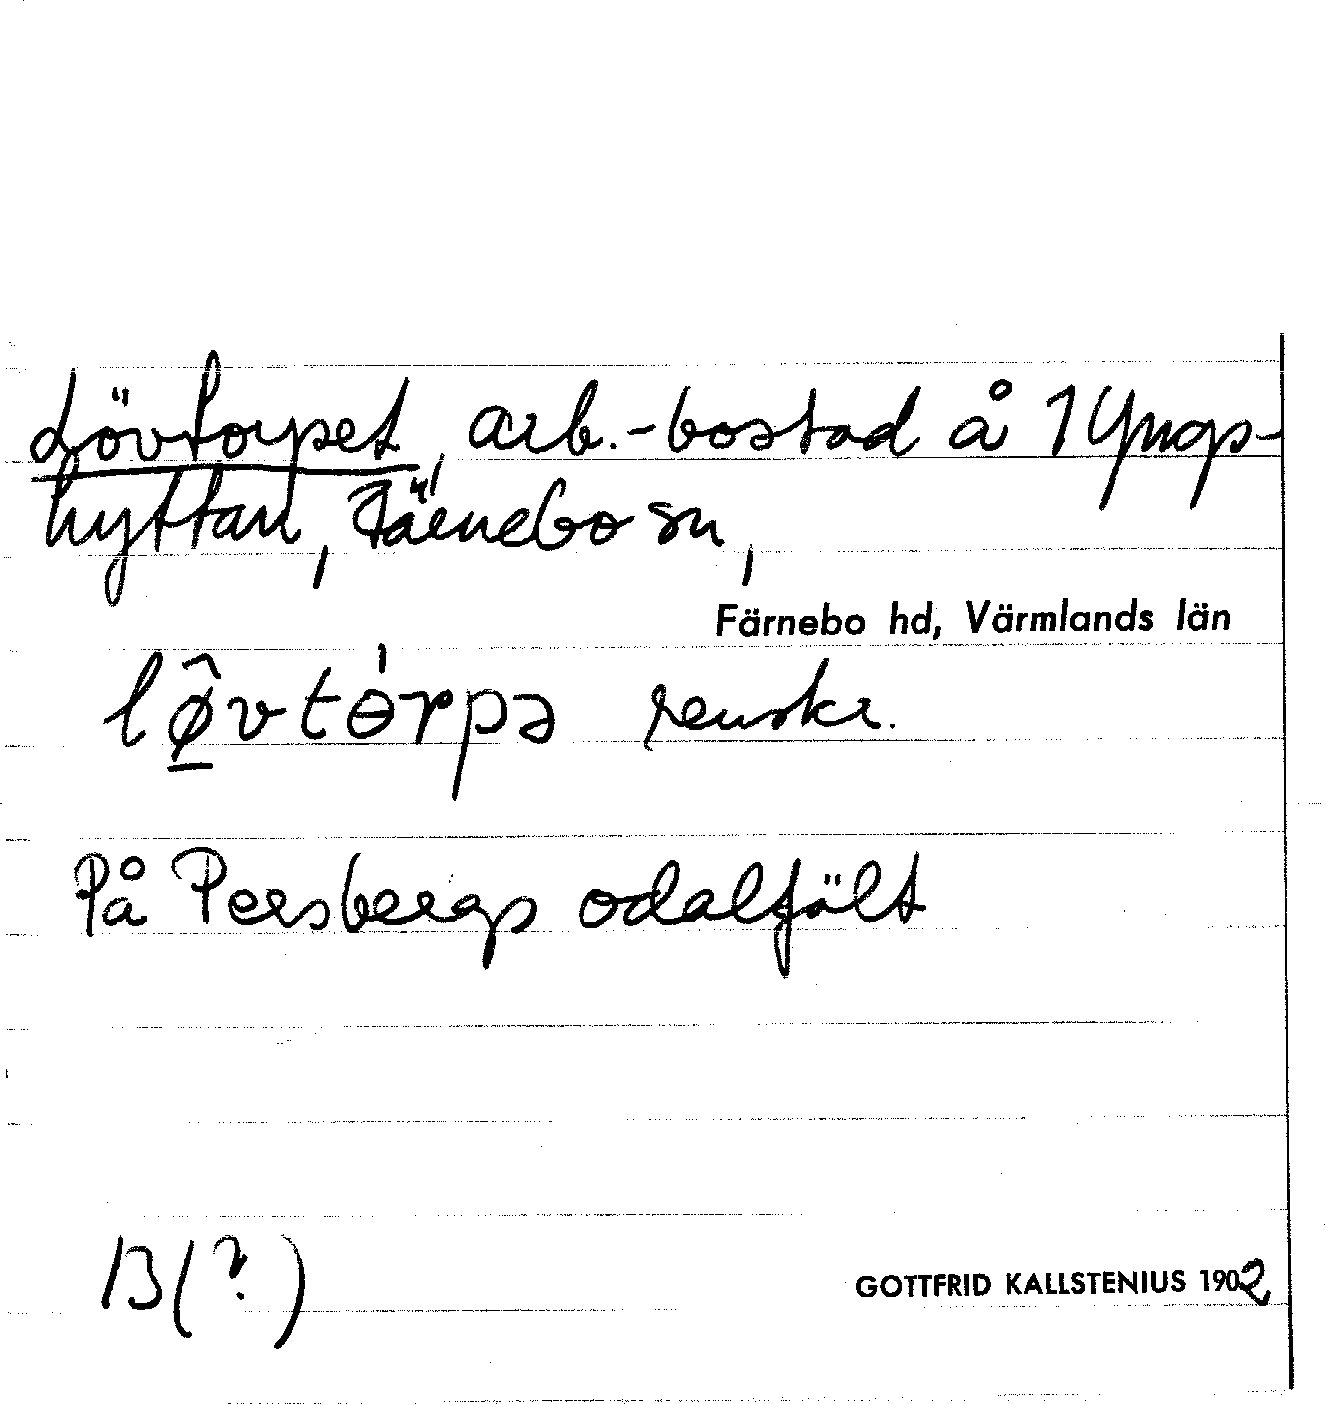 Lövtorpet, arb.-bostad å 1 Yngs-
hyttan, Färnebo sn,
Färnebo hd, Värmlands län
lø̂vtɵ́rpə renskr.
På Persbergs odalfält
B(?)
GOTTFRID KALLSTENIUS 1902